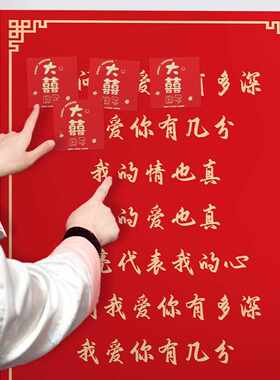 大囍 大囍 大囍
日子 日子
问 爱 有多深
大囍
日子
爱你有几分
我的情也真
的爱也真
代表我的心
我爱你有多深
我爱你有几分